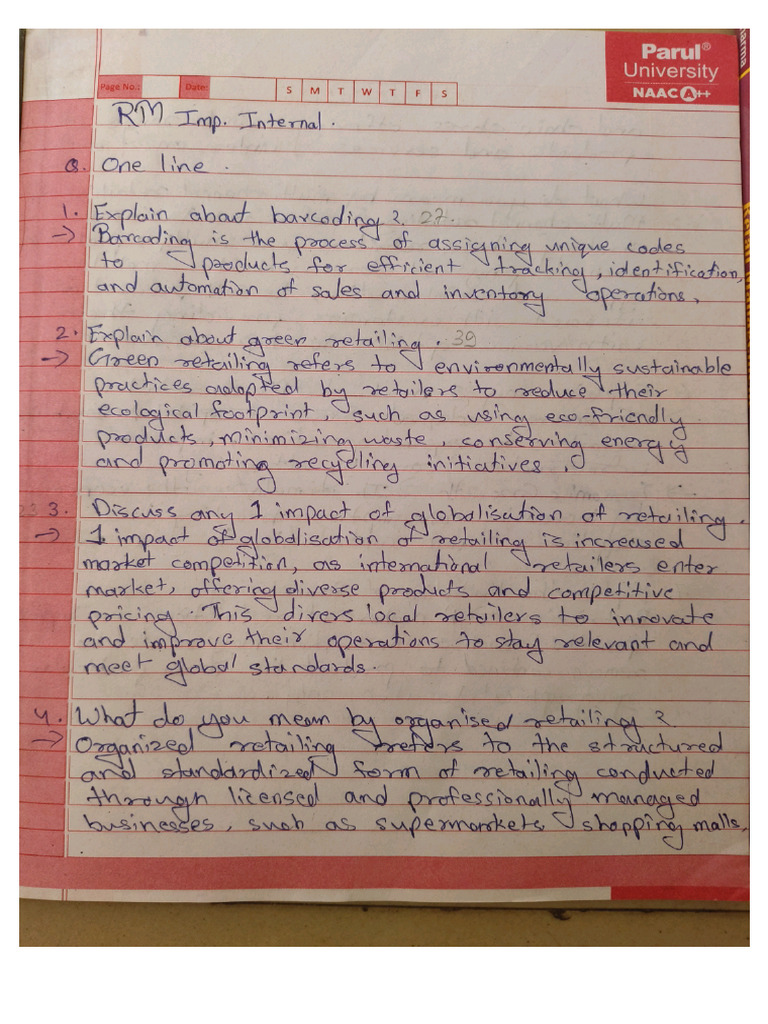 Parul®
University
NAAC A++
Page No.: Date: S M T W T F S
RM Imp. Internal.
Q. One line.
1. Explain about barcoding ? 27.
→ Barcoding is the process of assigning unique codes
to products for efficient tracking, identification,
and automation of sales and inventory operations.
2. Explain about green retailing. 39
→ Green retailing refers to environmentally sustainable
practices adopted by retailers to reduce their
ecological footprint, such as using eco-friendly
products, minimizing waste, conserving energy
and promoting recycling initiatives.
3. Discuss any 1 impact of globalisation of retailing.
→ 1 impact of globalisation of retailing is increased
market competition, as international retailers enter
market, offering diverse products and competitive
pricing. This divers local retailers to innovate
and improve their operations to stay relevant and
meet global standards.
4. What do you mean by organised retailing ?
→ Organized retailing refers to the structured
and standardized form of retailing conducted
through licensed and professionally managed
businesses, such as supermarkets, shopping malls,